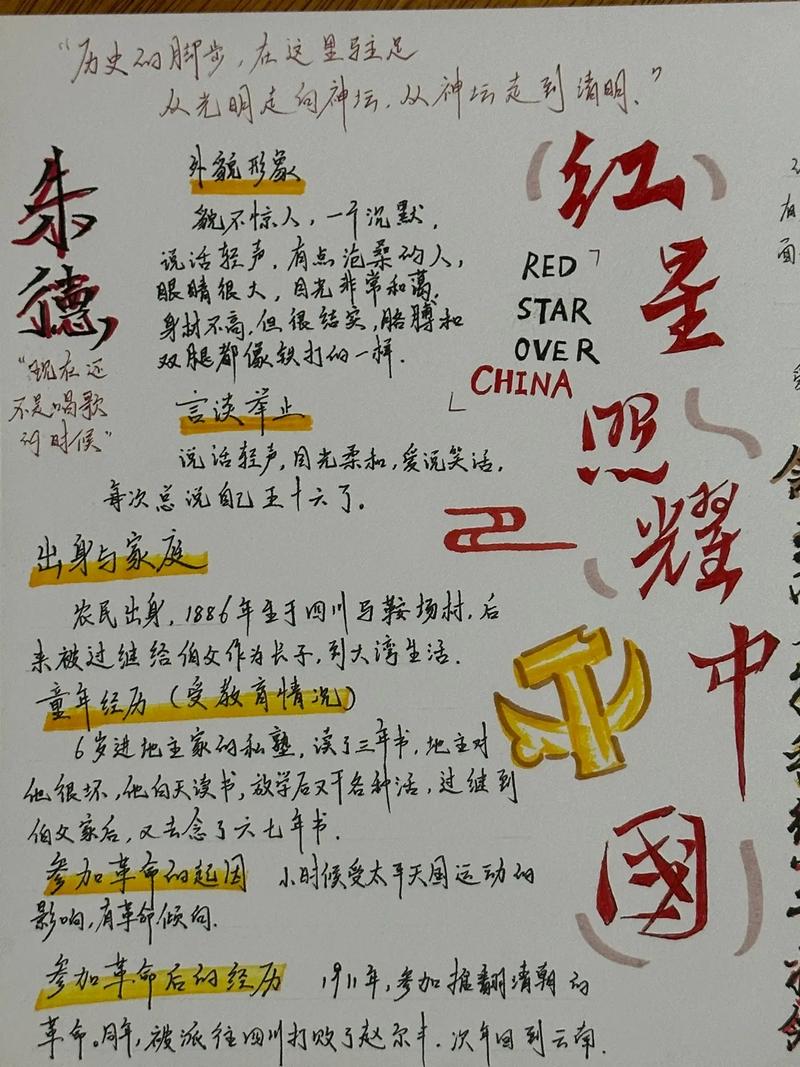 "历史的脚步,在这里驻足
从光明走向神坛,从神坛走到清明."
朱德
"现在还
不是唱歌
的时候"
外貌形象
貌不惊人,一个沉默,
说话轻声,有点沧桑的人,
眼睛很大,目光非常和蔼,
身材不高,但很结实,胳膊和
双腿都像铁打的一样.
言谈举止
说话轻声,目光柔和,爱说笑话,
每次总说自己五十六了.
出身与家庭
农民出身,1886年生于四川马鞍场村,后
来被过继给伯父作为长子,到大湾生活.
童年经历(受教育情况)
6岁进地主家的私塾,读了三年书,地主对
他很坏,他白天读书,放学后又干各种活,过继到
伯父家后,又去念了六七年书.
参加革命的起因 小时候受太平天国运动的
影响,有革命倾向.
参加革命后的经历 1911年,参加推翻清朝的
革命。同年,被派往四川打败了赵尔丰.次年回到云南.
红星照耀中國
RED
STAR
OVER
CHINA